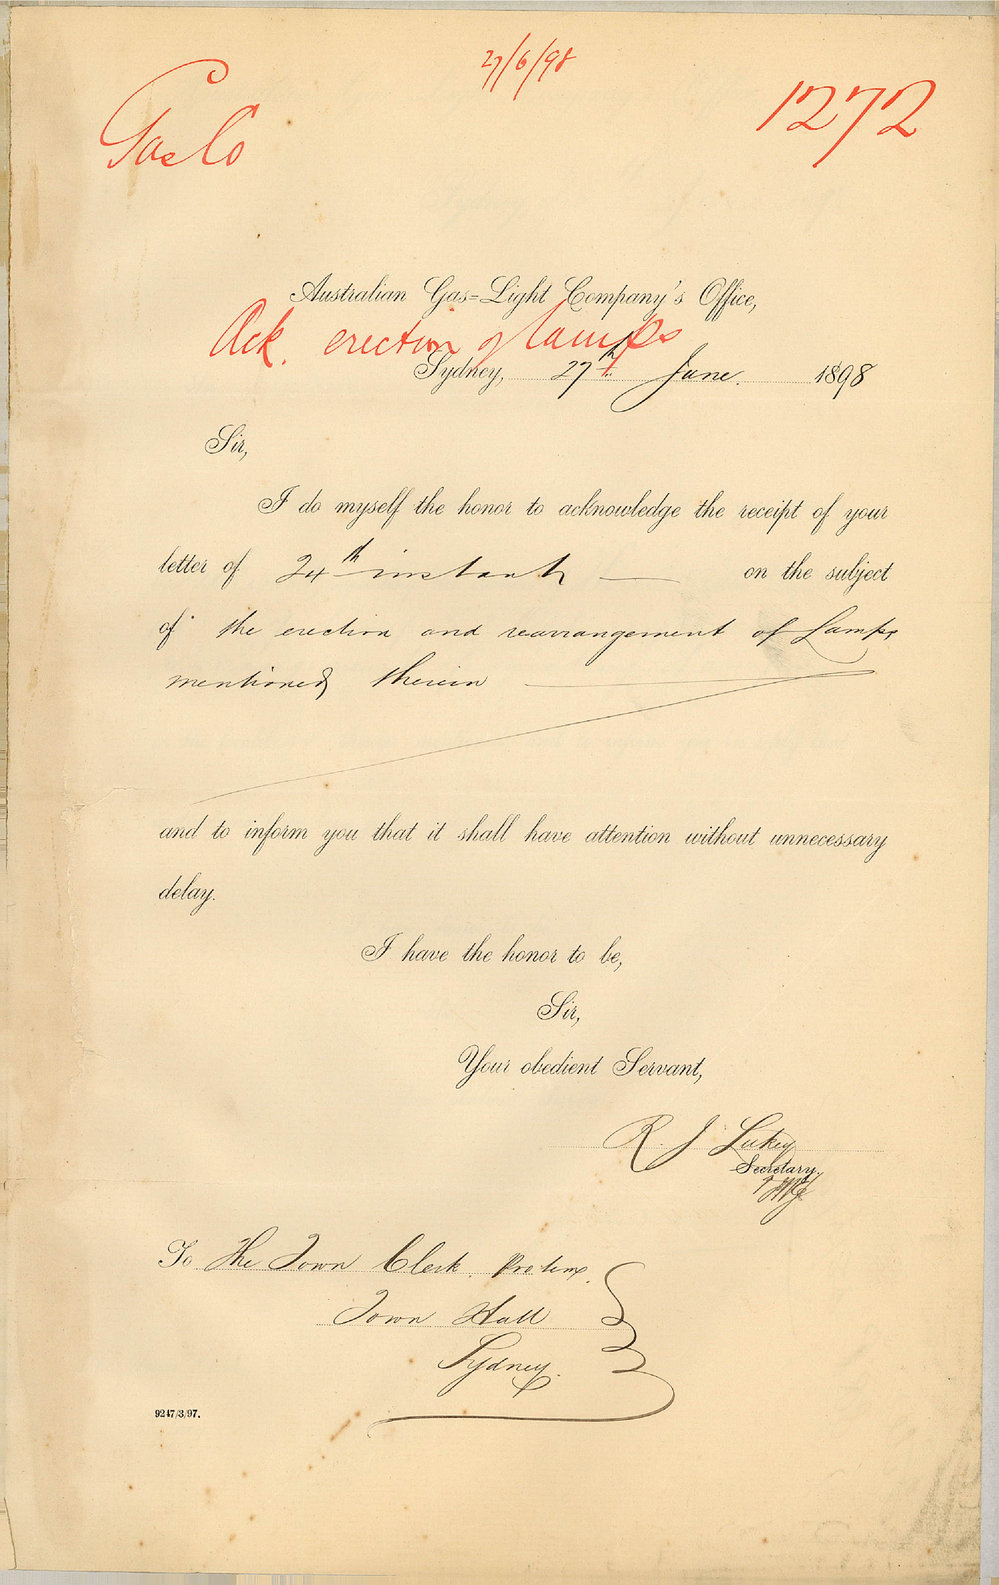 27/6/98
1272
Gas Co
Australian Gas=Light Company's Office,
Ack. erection of lamps
Sydney, 27th June. 1898
Sir,
I do myself the honor to acknowledge the receipt of your
letter of 24th instant — on the subject
of the erection and rearrangement of Lamps
mentioned therein —
and to inform you that it shall have attention without unnecessary
delay.
I have the honor to be,
Sir,
Your obedient Servant,
R. J. Lukey
Secretary.
To The Town Clerk. Protem.
Town Hall
Sydney.
9247/3/97.